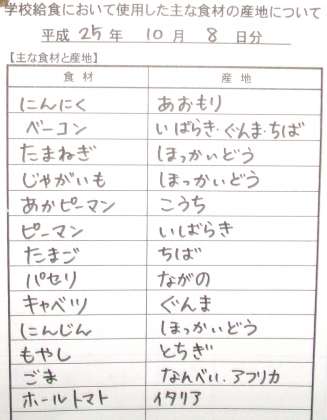 学校給食において使用した主な食材の産地について
平成 25 年 10 月 8 日分
【主な食材と産地】
食材 産地
にんにく あおもり
ベーコン いばらき・ぐんま・ちば
たまねぎ ほっかいどう
じゃがいも ほっかいどう
あかピーマン こうち
ピーマン いばらき
たまご ちば
パセリ ながの
キャベツ ぐんま
にんじん ほっかいどう
もやし とちぎ
ごま なんべい.アフリカ
ホールトマト イタリア